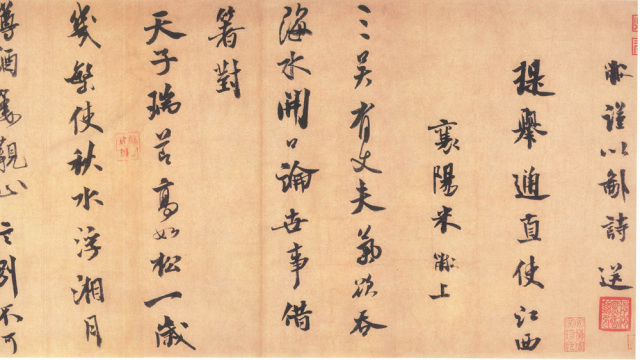 黻謹以鄙詩送
提舉通直使江西
襄陽米黻上
三吳有丈夫氣欲吞
海水開口論世事借
箸對
天子瑞節高如松一歲
幾繁使秋水浮湘月
酒 言別不可